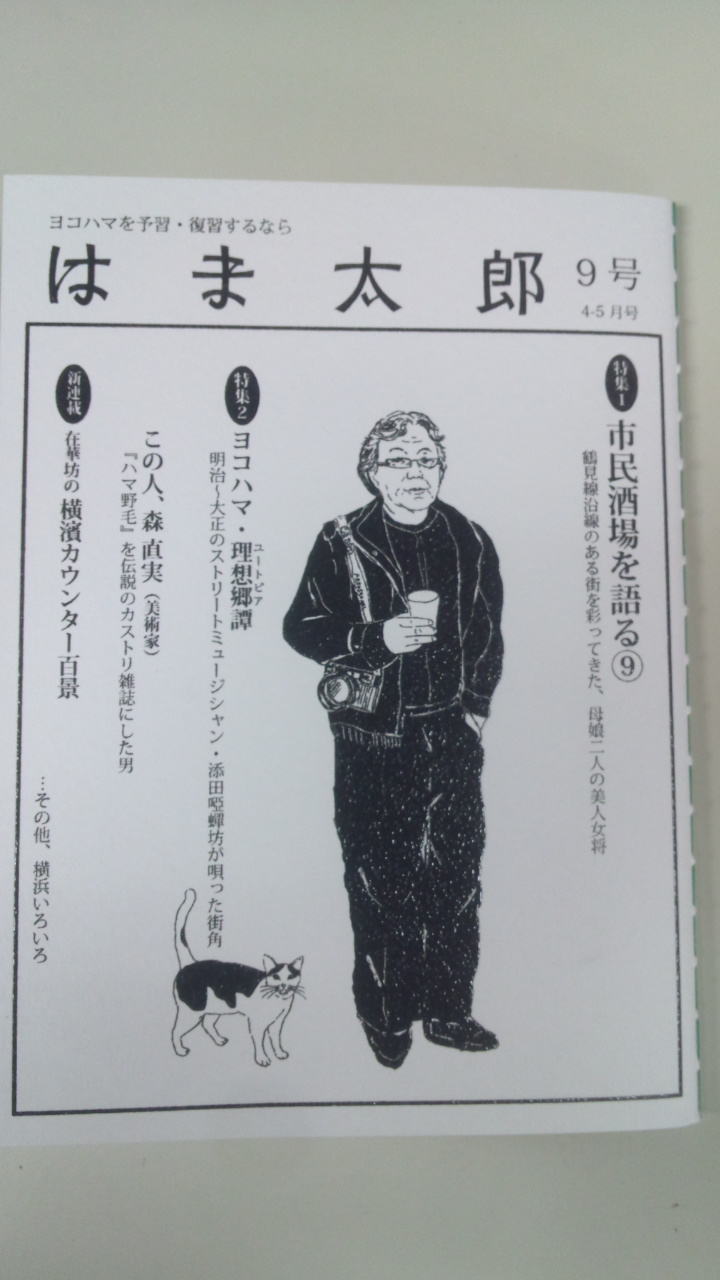 ヨコハマを予習・復習するなら
はま太郎 9号
4-5月号
特集1
市民酒場を語る⑨
鶴見線沿線のある街を彩ってきた、母娘二人の美人女将
特集2
ヨコハマ・理想郷譚
ユートピア
明治〜大正のストリートミュージシャン・添田啞蟬坊が唄った街角
この人、森 直実（美術家）
『ハマ野毛』を伝説のカストリ雑誌にした男
新連載
在華坊の 横濱カウンター百景
…その他、横浜いろいろ